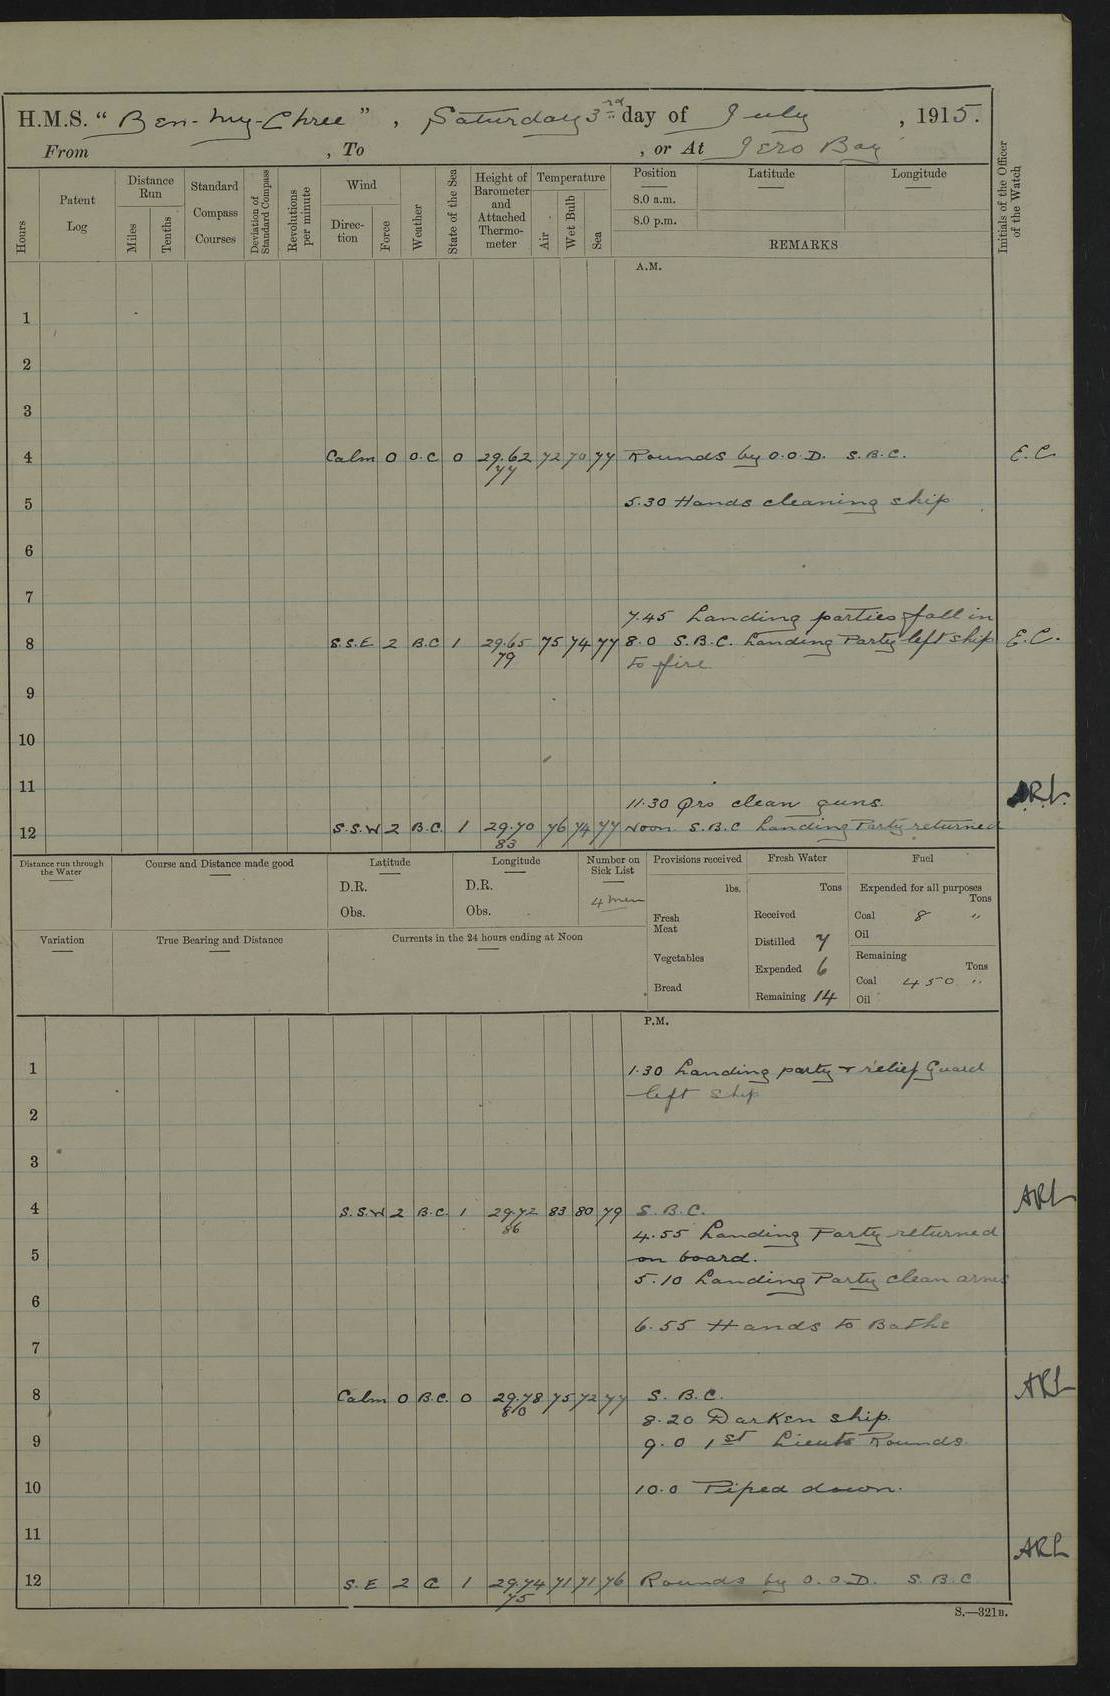 H.M.S. “ Ben-my-Chree ” , Saturday 3rd day of July , 1915.
From , To , or At Iero Bay
Hours
Patent Log
Distance Run
Miles
Tenths
Standard Compass Courses
Deviation of Standard Compass
Revolutions per minute
Wind
Direction
Force
Weather
State of the Sea
Height of Barometer and Attached Thermometer
Temperature
Air
Wet Bulb
Sea
Position
8.0 a.m.
8.0 p.m.
Latitude
Longitude
REMARKS
Initials of the Officer of the Watch
A.M.
1
2
3
4 Calm 0 O.C 0 29.62 77 72 70 77 Rounds by O.O.D. S.B.C. E.C.
5 5.30 Hands cleaning ship
6
7
7.45 Landing parties fall in
8 S.S.E 2 B.C 1 29.65 79 75 74 77 8.0 S.B.C. Landing Party left ship E.C.
to fire
9
10
11 ARL.
11.30 Qrs clean guns.
12 S.S.W 2 B.C. 1 29.70 83 76 74 77 Noon S.B.C Landing Party returned
Distance run through the Water
Course and Distance made good
Latitude
D.R.
Obs.
Longitude
D.R.
Obs.
Number on Sick List
4 men
Provisions received
lbs.
Fresh Meat
Vegetables
Bread
Fresh Water
Tons
Received
Distilled 7
Expended 6
Remaining 14
Fuel
Expended for all purposes
Tons
Coal 8 "
Oil
Remaining
Tons
Coal 450 "
Oil
Variation
True Bearing and Distance
Currents in the 24 hours ending at Noon
P.M.
1 1.30 Landing party + relief Guard
left ship
2
3
4 S.S.W 2 B.C. 1 29.72 86 83 80 79 S.B.C. ARL
4.55 Landing Party returned
5 on board.
5.10 Landing Party clean arms
6
6.55 Hands to Bathe
7
8 Calm 0 B.C. 0 29.78 80 75 72 77 S.B.C. ARL
8.20 Darken ship.
9 9.0 1st Lieuts Rounds
10 10.0 Piped down.
11 ARL
12 S.E 2 C 1 29.74 75 71 71 76 Rounds by O.O.D. S.B.C
S.—321B.